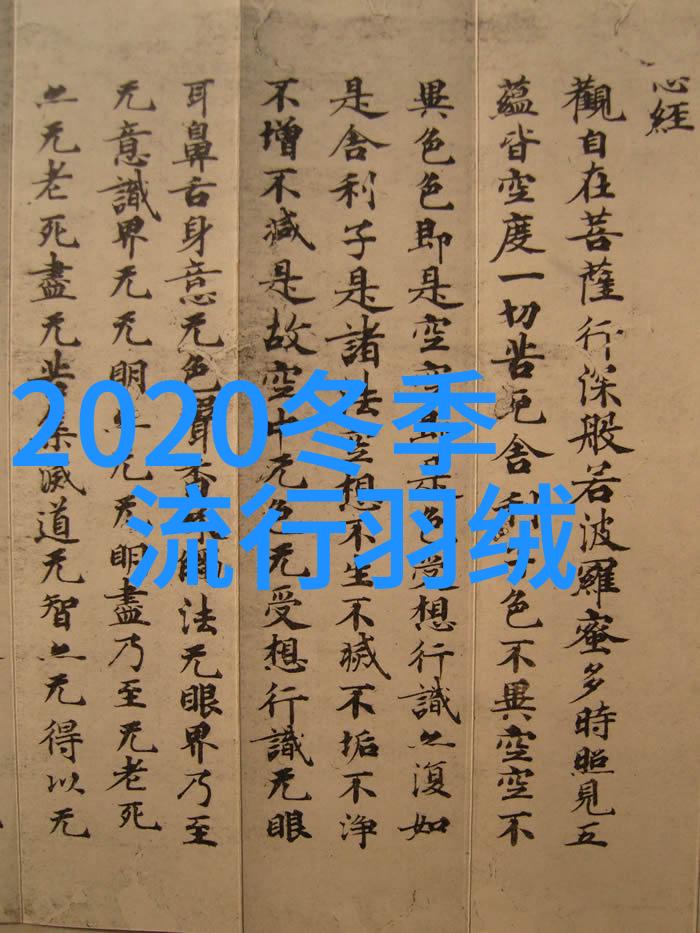 心經
觀自在菩薩行深般若波羅蜜多時照見五
蘊皆空度一切苦厄舍利子色不異空空不
異色色即是空空即是色受想行識亦復如
是舍利子是諸法空想不生不滅不垢不淨
不增不減是故空中无色无受想行識无眼
耳鼻舌身意无色聲香味觸法无眼界乃至
无意識界无无明亦无无明盡乃至无老死
亦无老死盡无苦集滅道无智亦无得以无
2020冬季
流行羽绒